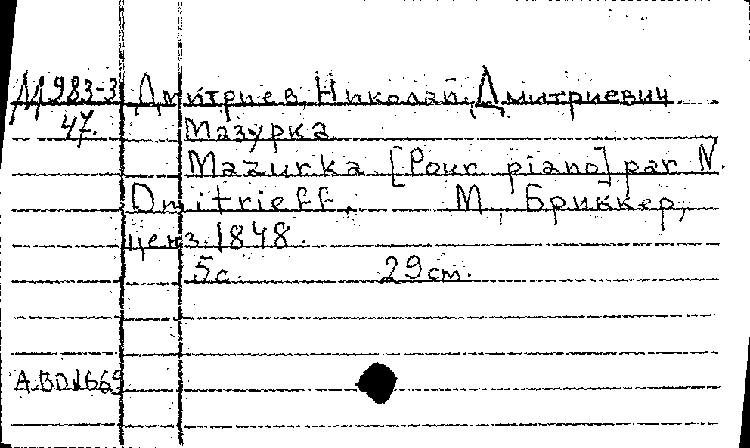 М 983-3 Дмитриев, Николай Дмитриевич
47. Мазурка
Mazurka [Pour piano] par N.
Dmitrieff. М., Бриккер,
ценз. 1848.
5 с. 29 см.